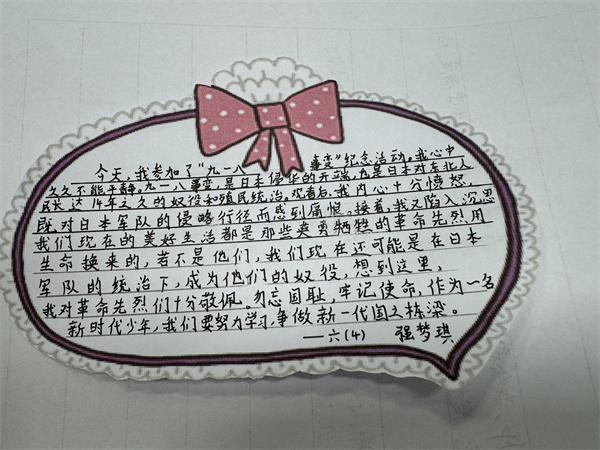 今天,我参加了“九一八事变”纪念活动。我心中
久久不能平静。九一八事变,是日本侵华的开端,也是日本对东北人
民长达14年之久的奴役和殖民统治。观看后,我内心十分愤怒,
既对日本军队的侵略行径而感到痛恨。接着,我又陷入沉思
我们现在的美好生活都是那些英勇牺牲的革命先烈用
生命换来的,若不是他们,我们现在还可能是在日本
军队的统治下,成为他们的奴役,想到这里,
我对革命先烈们十分敬佩。勿忘国耻,牢记使命,作为一名
新时代少年,我们要努力学习,争做新一代国之栋梁。
——六(4) 强梦琪